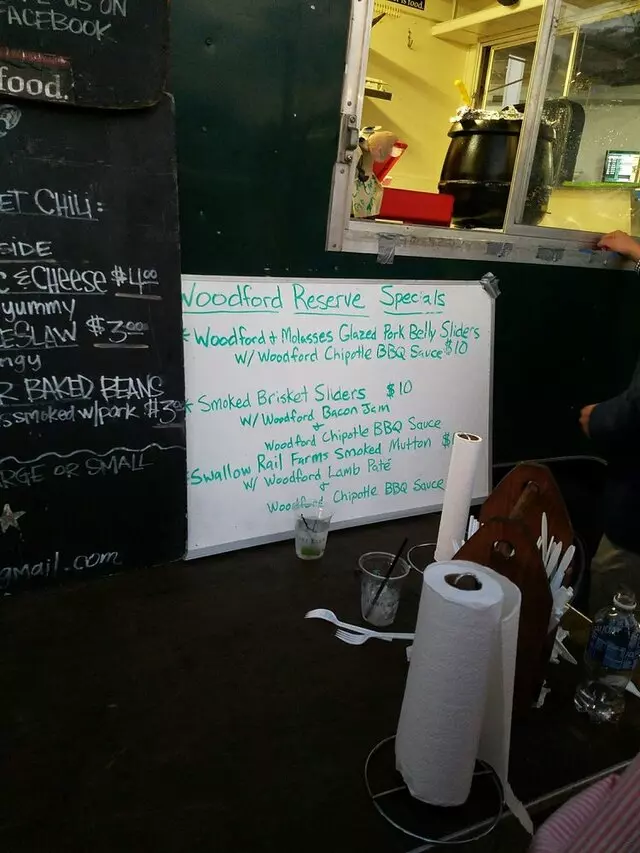 US ON
FACEBOOK
food.
is food.
CHILI:
SIDE
& CHEESE $4.00
yummy
$3.00
BAKED BEANS
smoked w/pork $3.00
OR SMALL
gmail.com
Woodford Reserve Specials
* Woodford + Molasses Glazed Pork Belly Sliders
w/ Woodford Chipotle BBQ Sauce $10
* Smoked Brisket Sliders $10
w/ Woodford Bacon Jam
+
Woodford Chipotle BBQ Sauce
Swallow Rail Farms Smoked Mutton $
w/ Woodford Lamb Paté
+
Woodford Chipotle BBQ Sauce